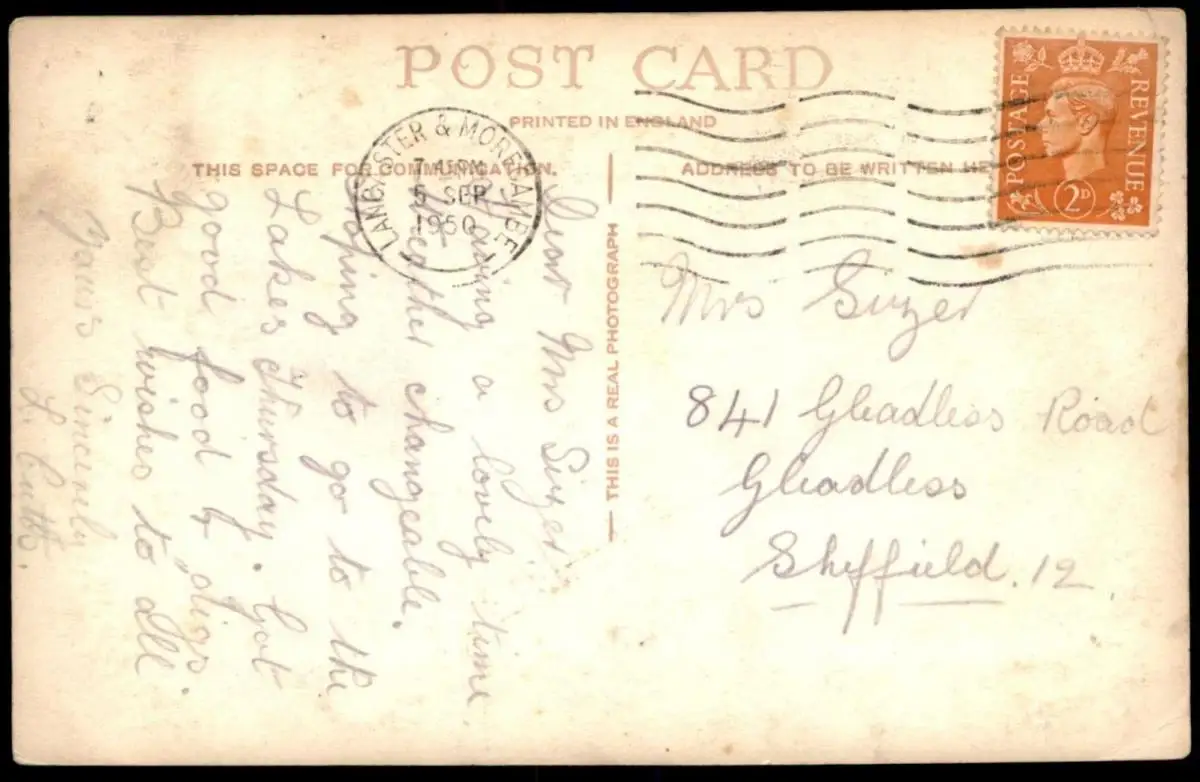 POST CARD
PRINTED IN ENGLAND
THIS SPACE FOR COMMUNICATION.
ADDRESS TO BE WRITTEN HE
THIS IS A REAL PHOTOGRAPH
LANCASTER & MORECAMBE
5 SEP
1950
POSTAGE
REVENUE
2D
Dear Mrs Suzer
Having a lovely time,
weather changeable.
hoping to go to the
Lakes Thursday. Got
good food & digs.
Best wishes to all
Yours Sincerely
L. Cutts.
Mrs Suzer
841 Gleadless Road
Gleadless
Sheffield. 12.